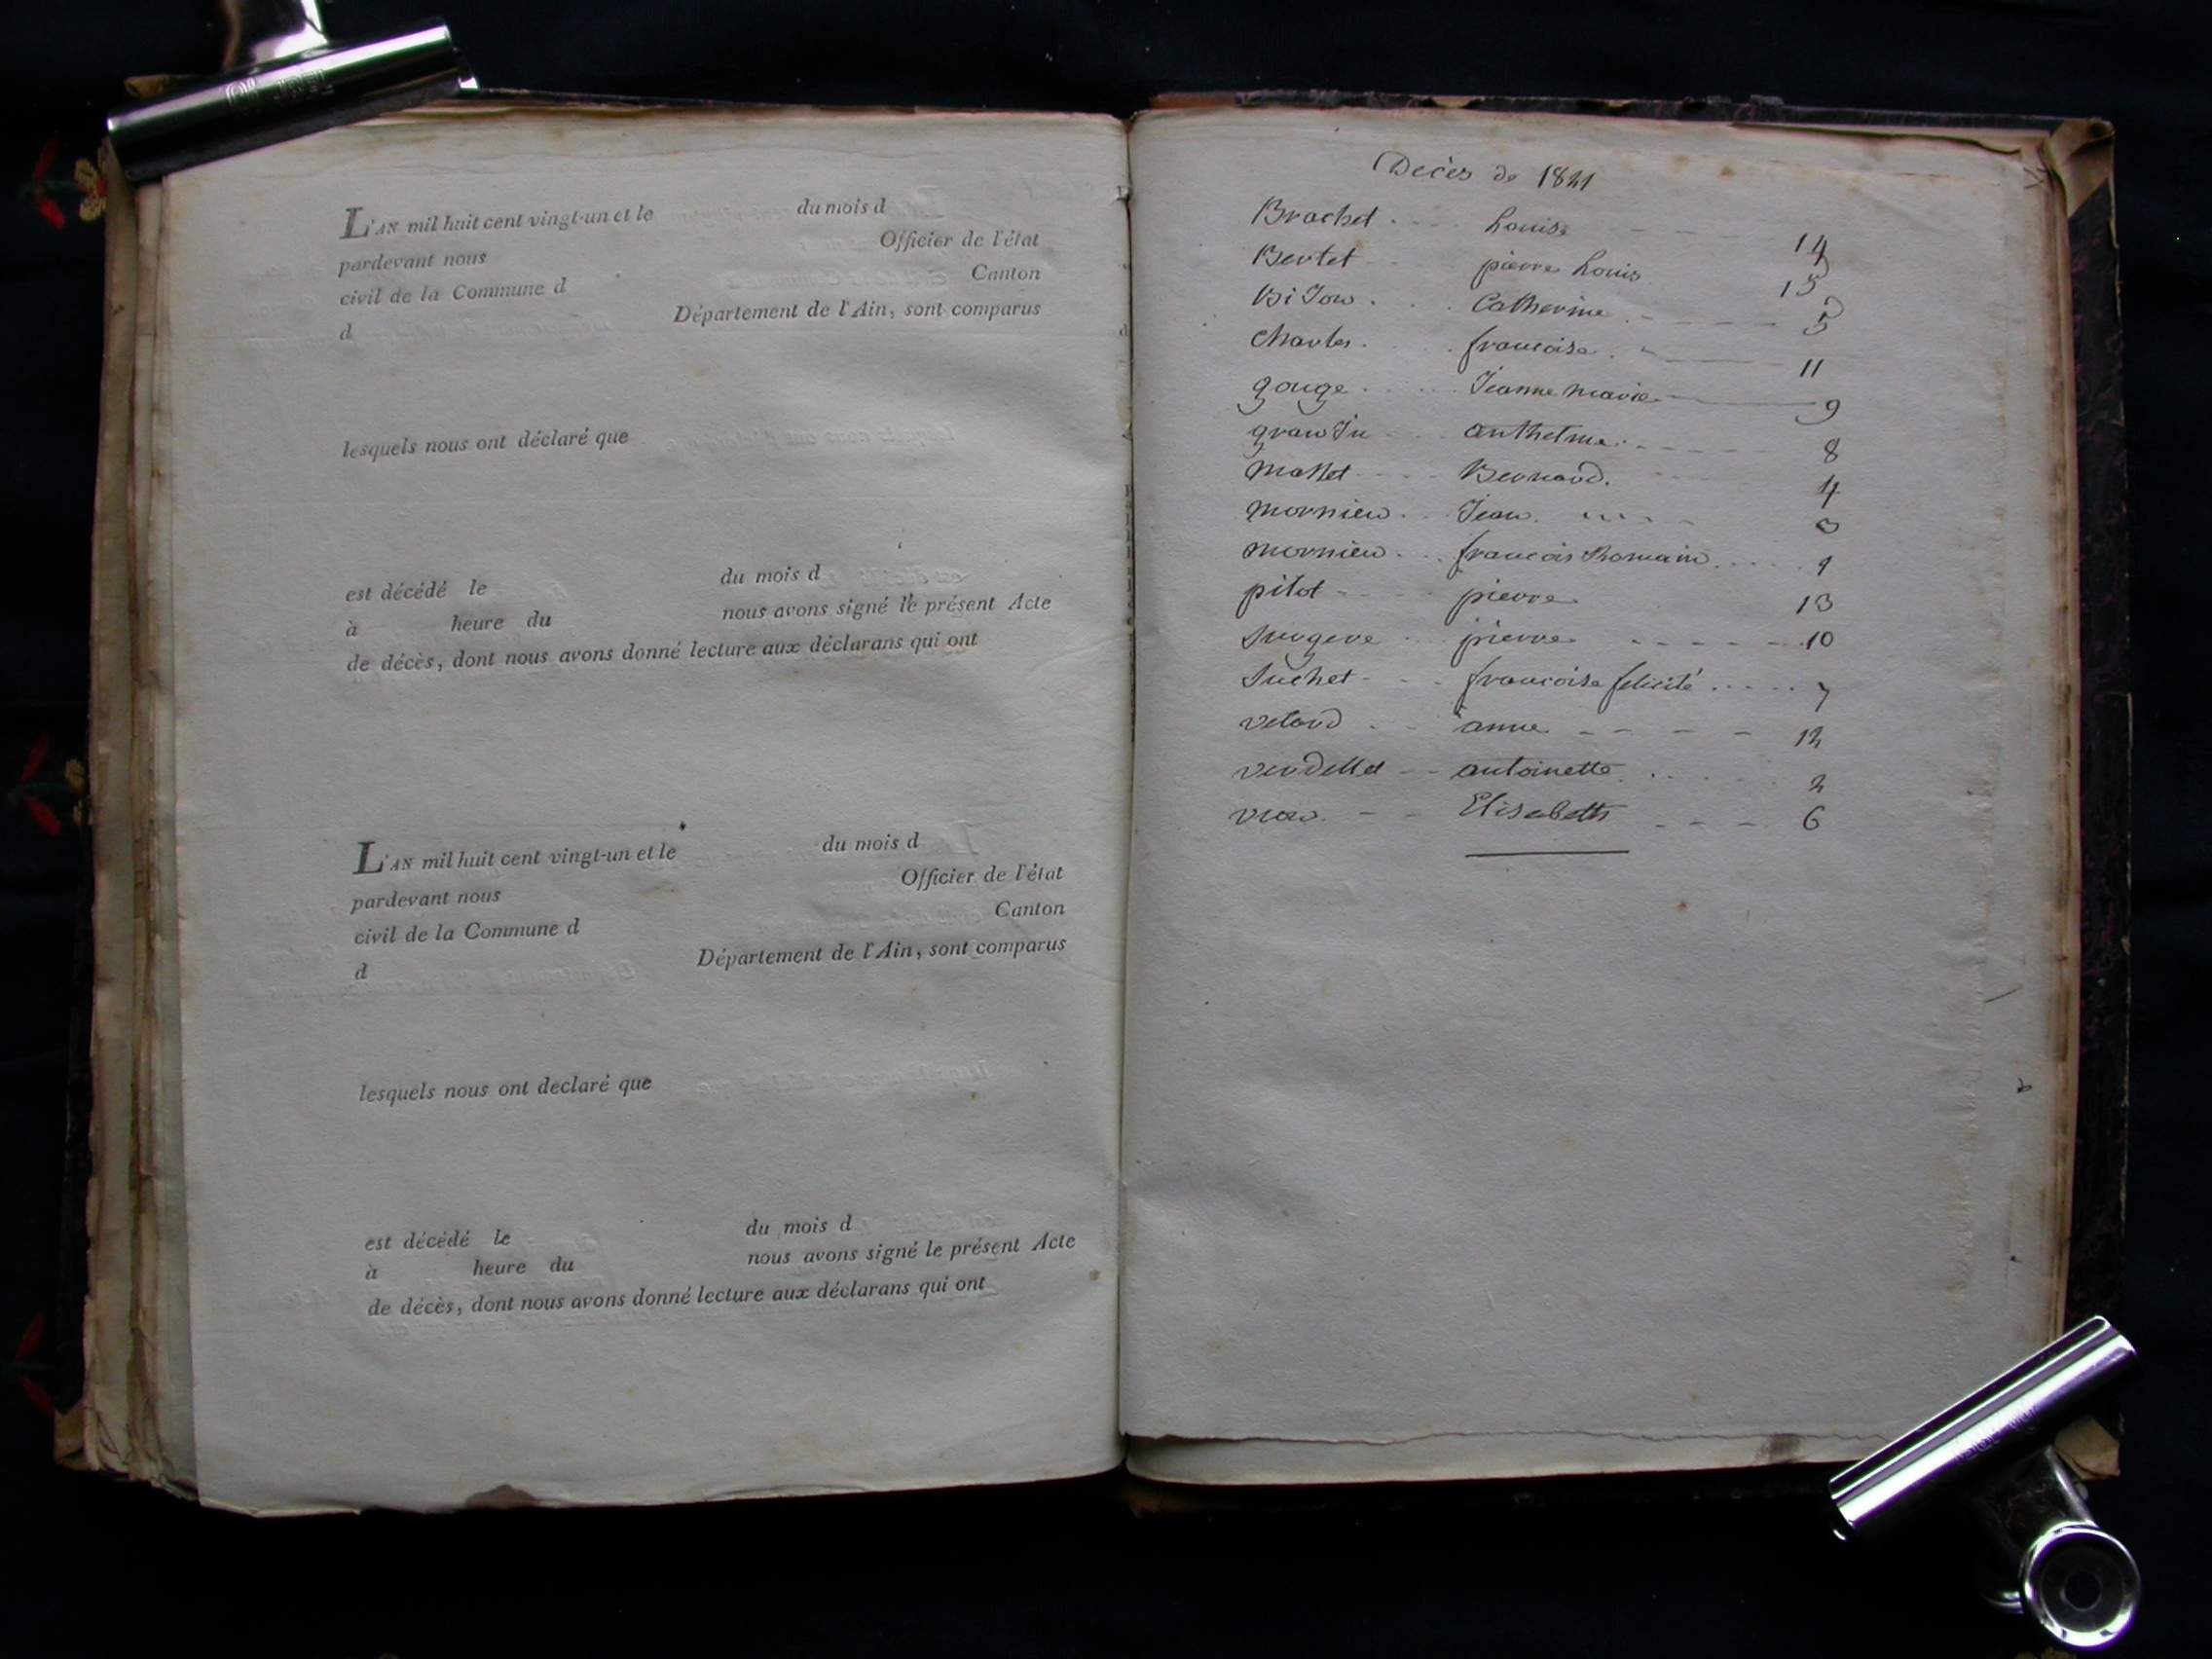 L'AN mil huit cent vingt-un et le du mois d
pardevant nous Officier de l'état
civil de la Commune d Canton
d Département de l'Ain, sont comparus
lesquels nous ont déclaré que
est décédé le du mois d
à heure du nous avons signé le présent Acte
de décès, dont nous avons donné lecture aux déclarans qui ont
L'AN mil huit cent vingt-un et le du mois d
pardevant nous Officier de l'état
civil de la Commune d Canton
d Département de l'Ain, sont comparus
lesquels nous ont declaré que
est décédé le du mois d
à heure du nous avons signé le présent Acte
de décès, dont nous avons donné lecture aux déclarans qui ont
Decès de 1821
Brachet Louise 14
Bertet pierre Louis 15
Bidon Catherine 5
Charles francoise 11
gouge Jeanne Marie 9
grandin anthelme 8
Mallet Bernard. 4
mornieu Jean 3
mornieu francois Romain 1
pilot pierre 13
Surgere pierre 10
Suchet francoise felicité 7
vetard anne 12
verdellet antoinette 2
Elisabeth 6